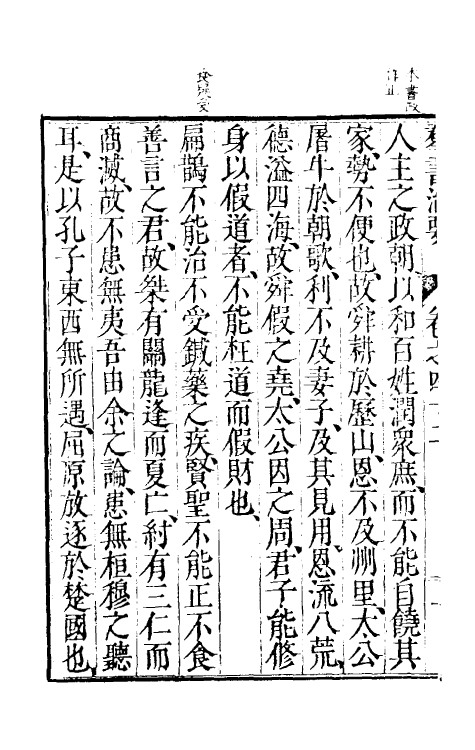 本書政
作正
羣書治要 卷之四十二
人主之政朝以和百姓潤衆庶而不能自饒其
家、勢不便也、故舜耕於歷山、恩不及州里、太公
屠牛於朝歌、利不及妻子、及其見用、恩流八荒、
德溢四海、故舜假之堯、太公因之周、君子能修
身以假道者、不能枉道而假財也、
扁鵲不能治不受鍼藥之疾、賢聖不能正不食
善言之君、故桀有關龍逢而夏亡、紂有三仁而
商滅、故不患無夷吾由余之論、患無桓穆之聽
耳、是以孔子東西無所遇、屈原放逐於楚國也、